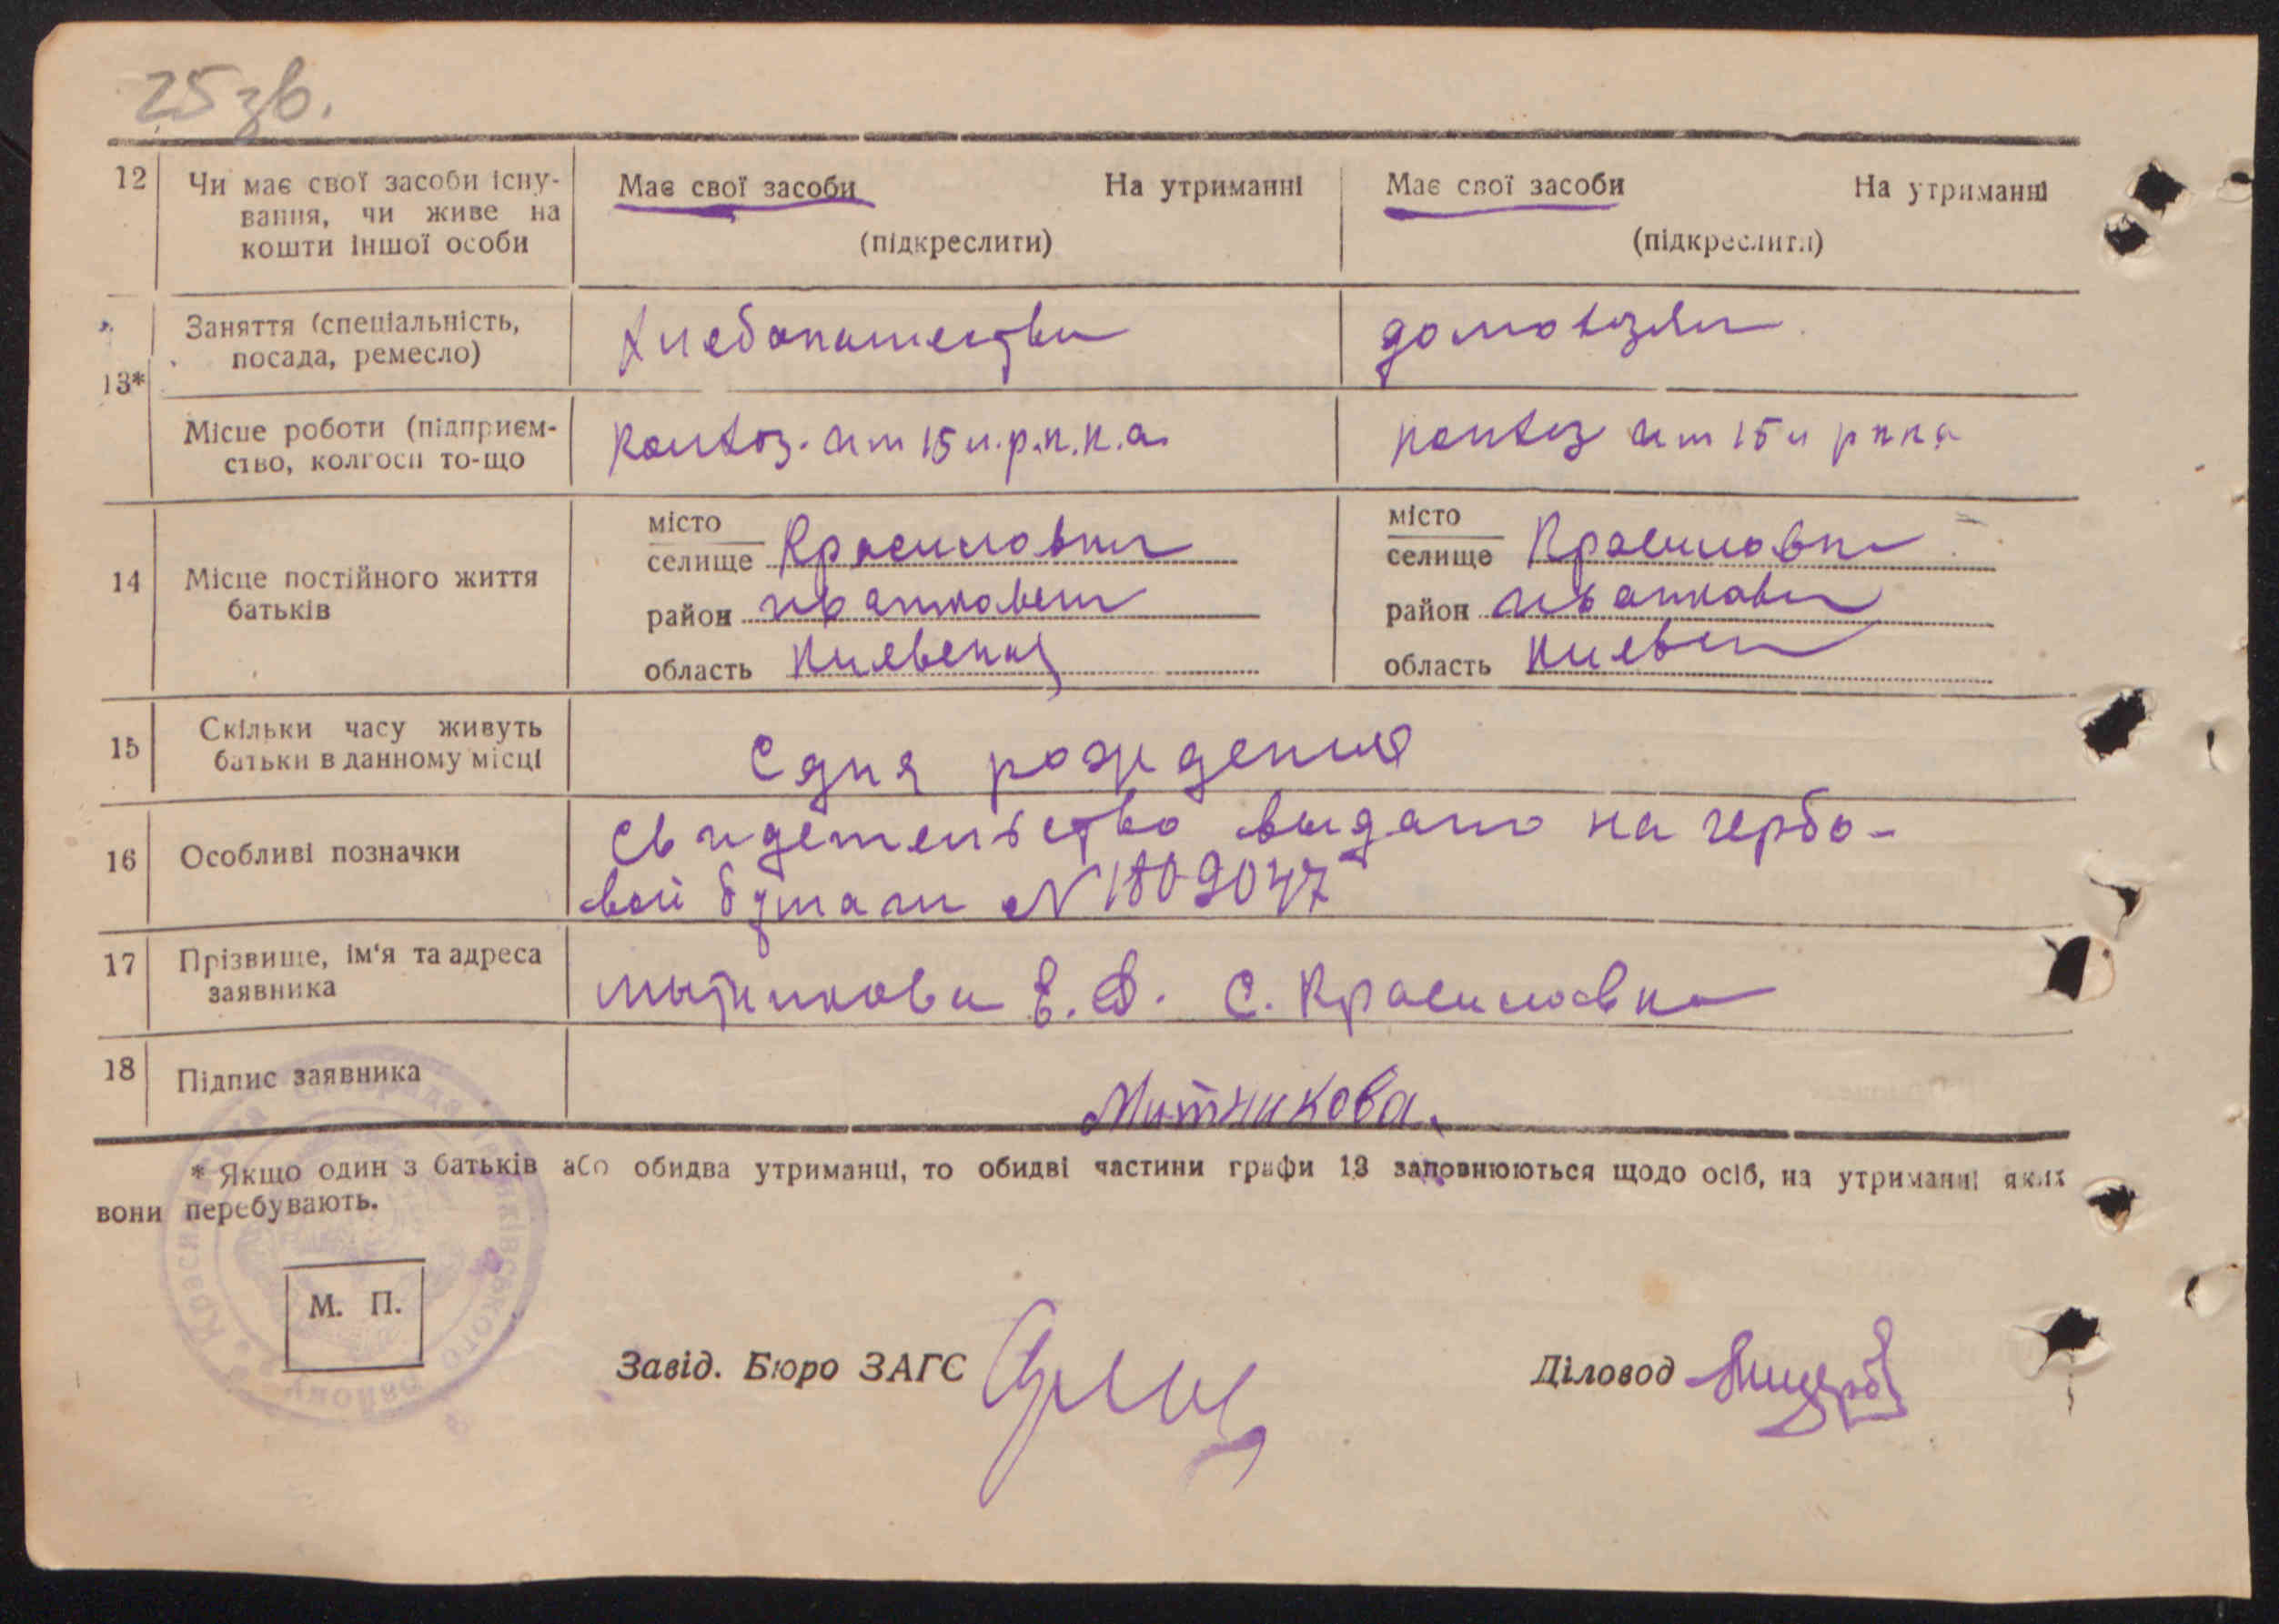 25 зв.
12 Чи має свої засоби існу-
вання, чи живе на
кошти іншої особи
Має свої засоби На утриманні
(підкреслити)
Має свої засоби На утриманні
(підкреслити)
13*
Заняття (спеціальність,
посада, ремесло)
Хлебопашество
домохозяй
Місце роботи (підприєм-
ство, колгосп то-що
колхоз. им 15 л.р.к.к.а.
колхоз им 15 л р к к а
14 Місце постійного життя
батьків
місто
селище Красиловка
район иванковск
область Киевская
місто
селище Красиловка
район иванков
область Киевск
15 Скільки часу живуть
батьки в данному місці
С дня рождения
16 Особливі позначки
свидетельство выдано на гербо-
вой бумаги N 1809047
17 Прізвище, ім'я та адреса
заявника
мытникова Е. Д. С. Красиловка
18 Підпис заявника
Митникова.
* Якщо один з батьків або обидва утриманці, то обидві частини графи 13 заповнюються щодо осіб, на утриманні яких
вони перебувають.
М. П.
Завід. Бюро ЗАГС
Діловод